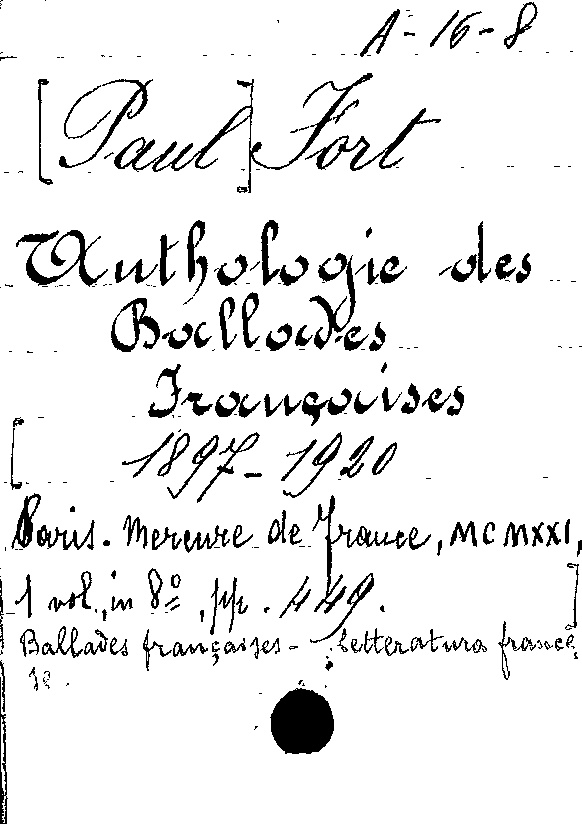 A-16-8
[Paul] Fort
Anthologie des
Ballades
Françaises
[ 1897-1920
Paris. Mercure de France, MCMXXI,
1 vol., in 8º, pp. 449. ]
Ballades françaises - Letteratura france
se.